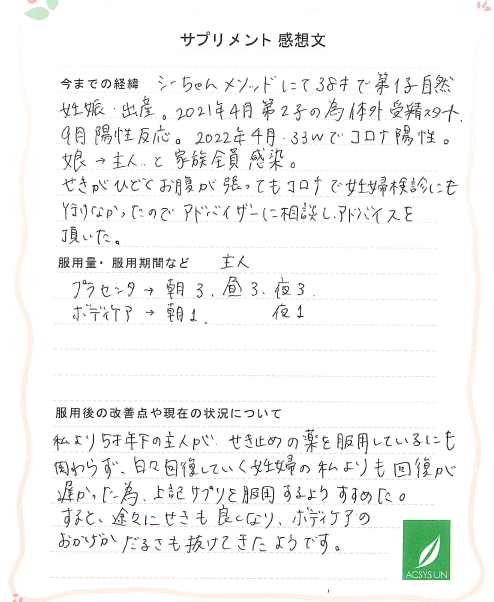 サプリメント 感想文
今までの経緯 シーちゃんメソッドにて38才で第1子自然
妊娠・出産。2021年4月第2子の為体外受精スタート、
9月陽性反応。2022年4月・33wでコロナ陽性。
娘→主人と家族全員感染。
せきがひどくお腹が張ってもコロナで妊婦検診にも
行けなかったのでアドバイザーに相談し、アドバイスを
頂いた。
服用量・服用期間など 主人
プラセンタ→朝3、昼3、夜3
ボディケア→朝1、 夜1
服用後の改善点や現在の状況について
私より5才年下の主人が、せき止めの薬を服用しているにも
関わらず、日々回復していく妊婦の私よりも回復が
遅かった為、上記サプリを服用するようすすめた。
すると、途々にせきも良くなり、ボディケアの
おかげかだるさも抜けてきたようです。
ACSYSUN